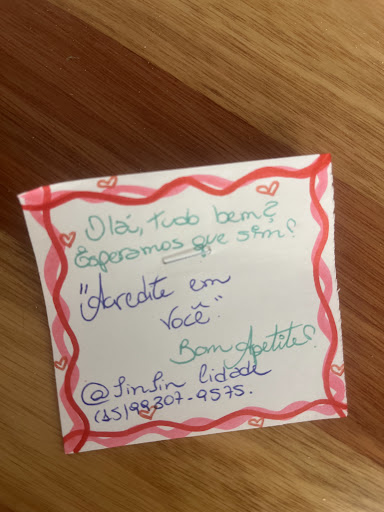 Olá, tudo bem?
Esperamos que sim!
"Acredite em
você"
Bom Apetite!
@finfin lidade
(15)99307-9575.